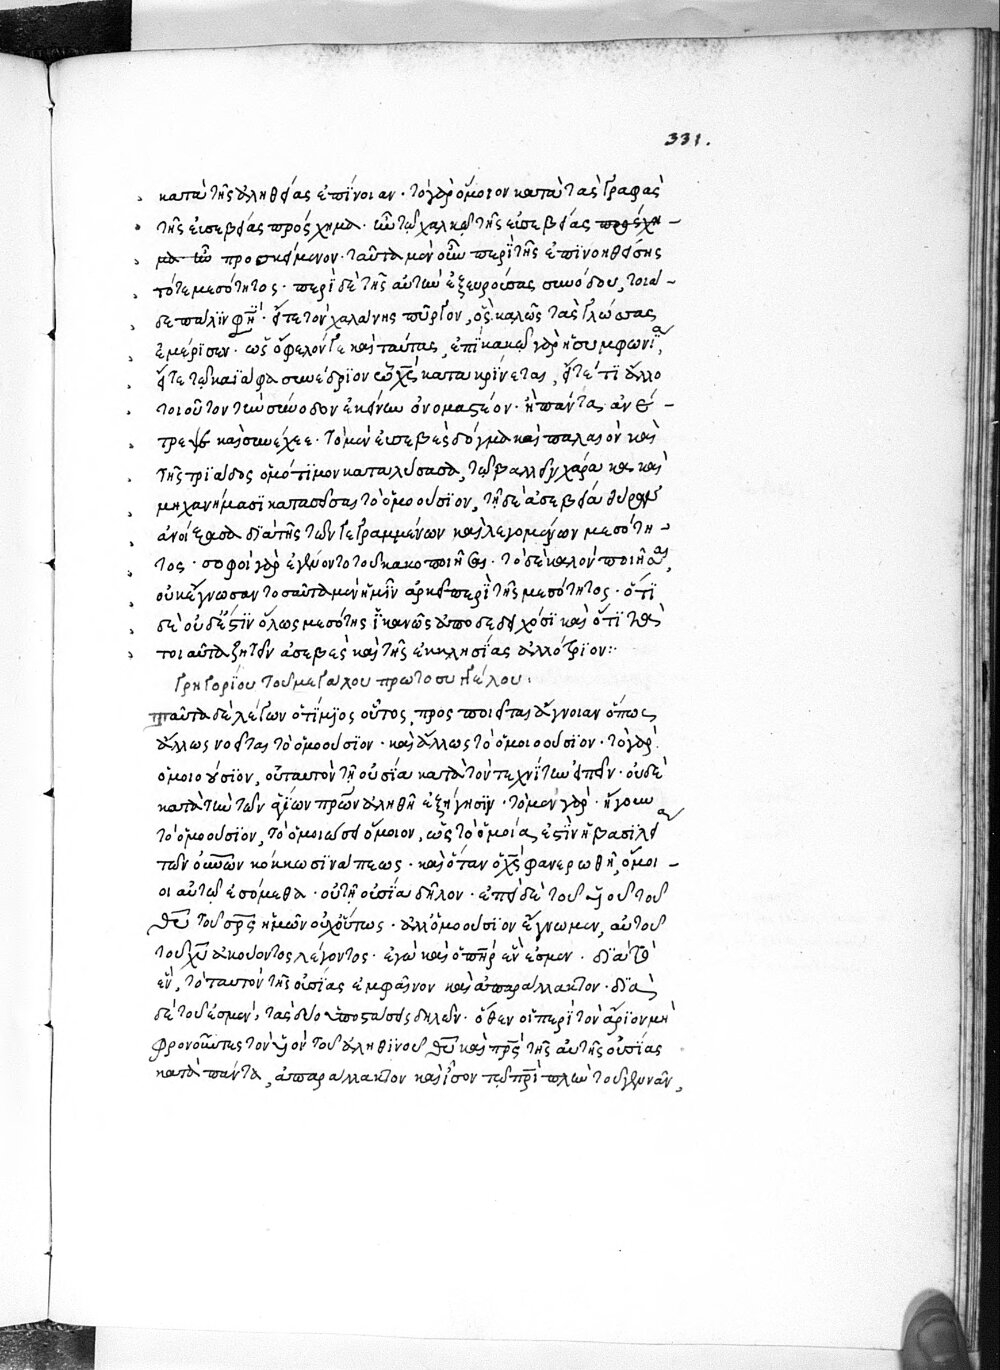 331.
κατὰ τῆς ἀληθείας ἐπίνοιαν· τὸ γὰρ ὅμοιον κατὰ τὰς γραφὰς
τῆς εὐσεβείας πρόσχημα· τῆς εὐσεβείας
προκείμενον· ταῦτα μὲν οὖν περὶ τῆς ἐπινοηθείσης
τότε μεσότητος· περὶ δὲ τῆς αὐτὴν ἐξευρούσας συνόδου, τοιά-
δε πάλιν φη· εἴτε τὸν χαλάνης πύργον, ὃς καλῶς τὰς γλώσσας
ἐμέρισεν· ὡς ὄφελόν γε καὶ ταύτας, ἐπὶ κακῷ γὰρ ἡ συμφωνία,
εἴτε τῷ καϊάφα συνέδριον ᾧ χς κατακρίνεται, εἴτέ τι ἄλλο
τοιοῦτον τὴν σύνοδον ἐκείνην ὀνομαστέον· ἣ πάντα ἀνέ-
τρεψε καὶ συνέχεε· τὸ μὲν εὐσεβὲς δόγμα καὶ παλαιὸν καὶ
τῆς τριάδος ὁμότιμον καταλύσασα, τῷ βαλεῖν χάρακα καὶ
μηχανήμασι κατασεῖσαι τὸ ὁμοούσιον, τῇ δὲ ἀσεβείᾳ θύραν
ἀνοίξασα διὰ τῆς τῶν γεγραμμένων καὶ λεγομένων μεσότη-
τος· σοφοὶ γὰρ ἐγένοντο τοῦ κακοποιῆσαι· τὸ δὲ καλὸν ποιῆσαι,
οὐκ ἔγνωσαν τοσαῦτα μὲν ἡμῖν ἀρκεῖ περὶ τῆς μεσότητος· ὅτι
δὲ οὐδέ ἐστιν ὅλως μεσότης ἱκανῶς ἀποδέδειχόσι καὶ ὅτι τὰ
τοιαῦτα ζητεῖν ἀσεβὲς καὶ τῆς ἐκκλησίας ἀλλότριον:·
γρηγορίου τοῦ μεγάλου πρωτοσυγκέλου·
ταῦτα δὲ λέγων ὁ τίμιος οὗτος, προσποιεῖται ἄγνοιαν ὅπως
ἄλλως νοεῖται τὸ ὁμοούσιον· καὶ ἄλλως τὸ ὁμοιοούσιον· τὸ γὰρ
ὁμοιούσιον, οὐ ταυτὸν τῇ οὐσίᾳ κατὰ τὸν τεχνίτην εἰπεῖν· οὐδὲ
κατὰ τὴν τῶν ἁγίων πρων ἀληθῆ ἐξήγησιν· τὸ μὲν γὰρ· ἤγουν
τὸ ὁμοούσιον, τὸ ὁμοιώσει ὅμοιον, ὡς τὸ ὁμοία ἐστὶν ἡ βασιλεία
τῶν οὐνῶν κόκκῳ σινάπεως· καὶ ὅταν ὁ χς φανερωθῇ, ὅμοι-
οι αὐτῷ ἐσόμεθα· οὐ τῇ οὐσίᾳ δῆλον· ἐπεὶ δὲ τοῦ υἱοῦ τοῦ
θυ τοῦ σρς ἡμῶν οὐχ οὕτως· ἀλλ' ὁμοούσιον ἔγνωμεν, αὐτοῦ
τοῦ χυ ἀκούοντος λέγοντος· ἐγὼ καὶ ὁ πηρ ἕν ἐσμεν· διὰ τὸ
ἕν, τὸ ταυτὸν τῆς οὐσίας ἐμφαῖνον καὶ ἀπαράλλακτον· διὰ
δὲ τοῦ ἐσμέν, τὰς δύο ὑποστάσεις δηλῶν· ὅθεν οἱ περὶ τὸν ἄρειον μὴ
φρονοῦντες τὸν υἱὸν τοῦ ἀληθινοῦ θυ καὶ πρς τῆς αὐτῆς οὐσίας
κατὰ πάντα, ἀπαράλλακτον καὶ ἴσον τῷ πρι πλὴν τοῦ γεννᾶν,